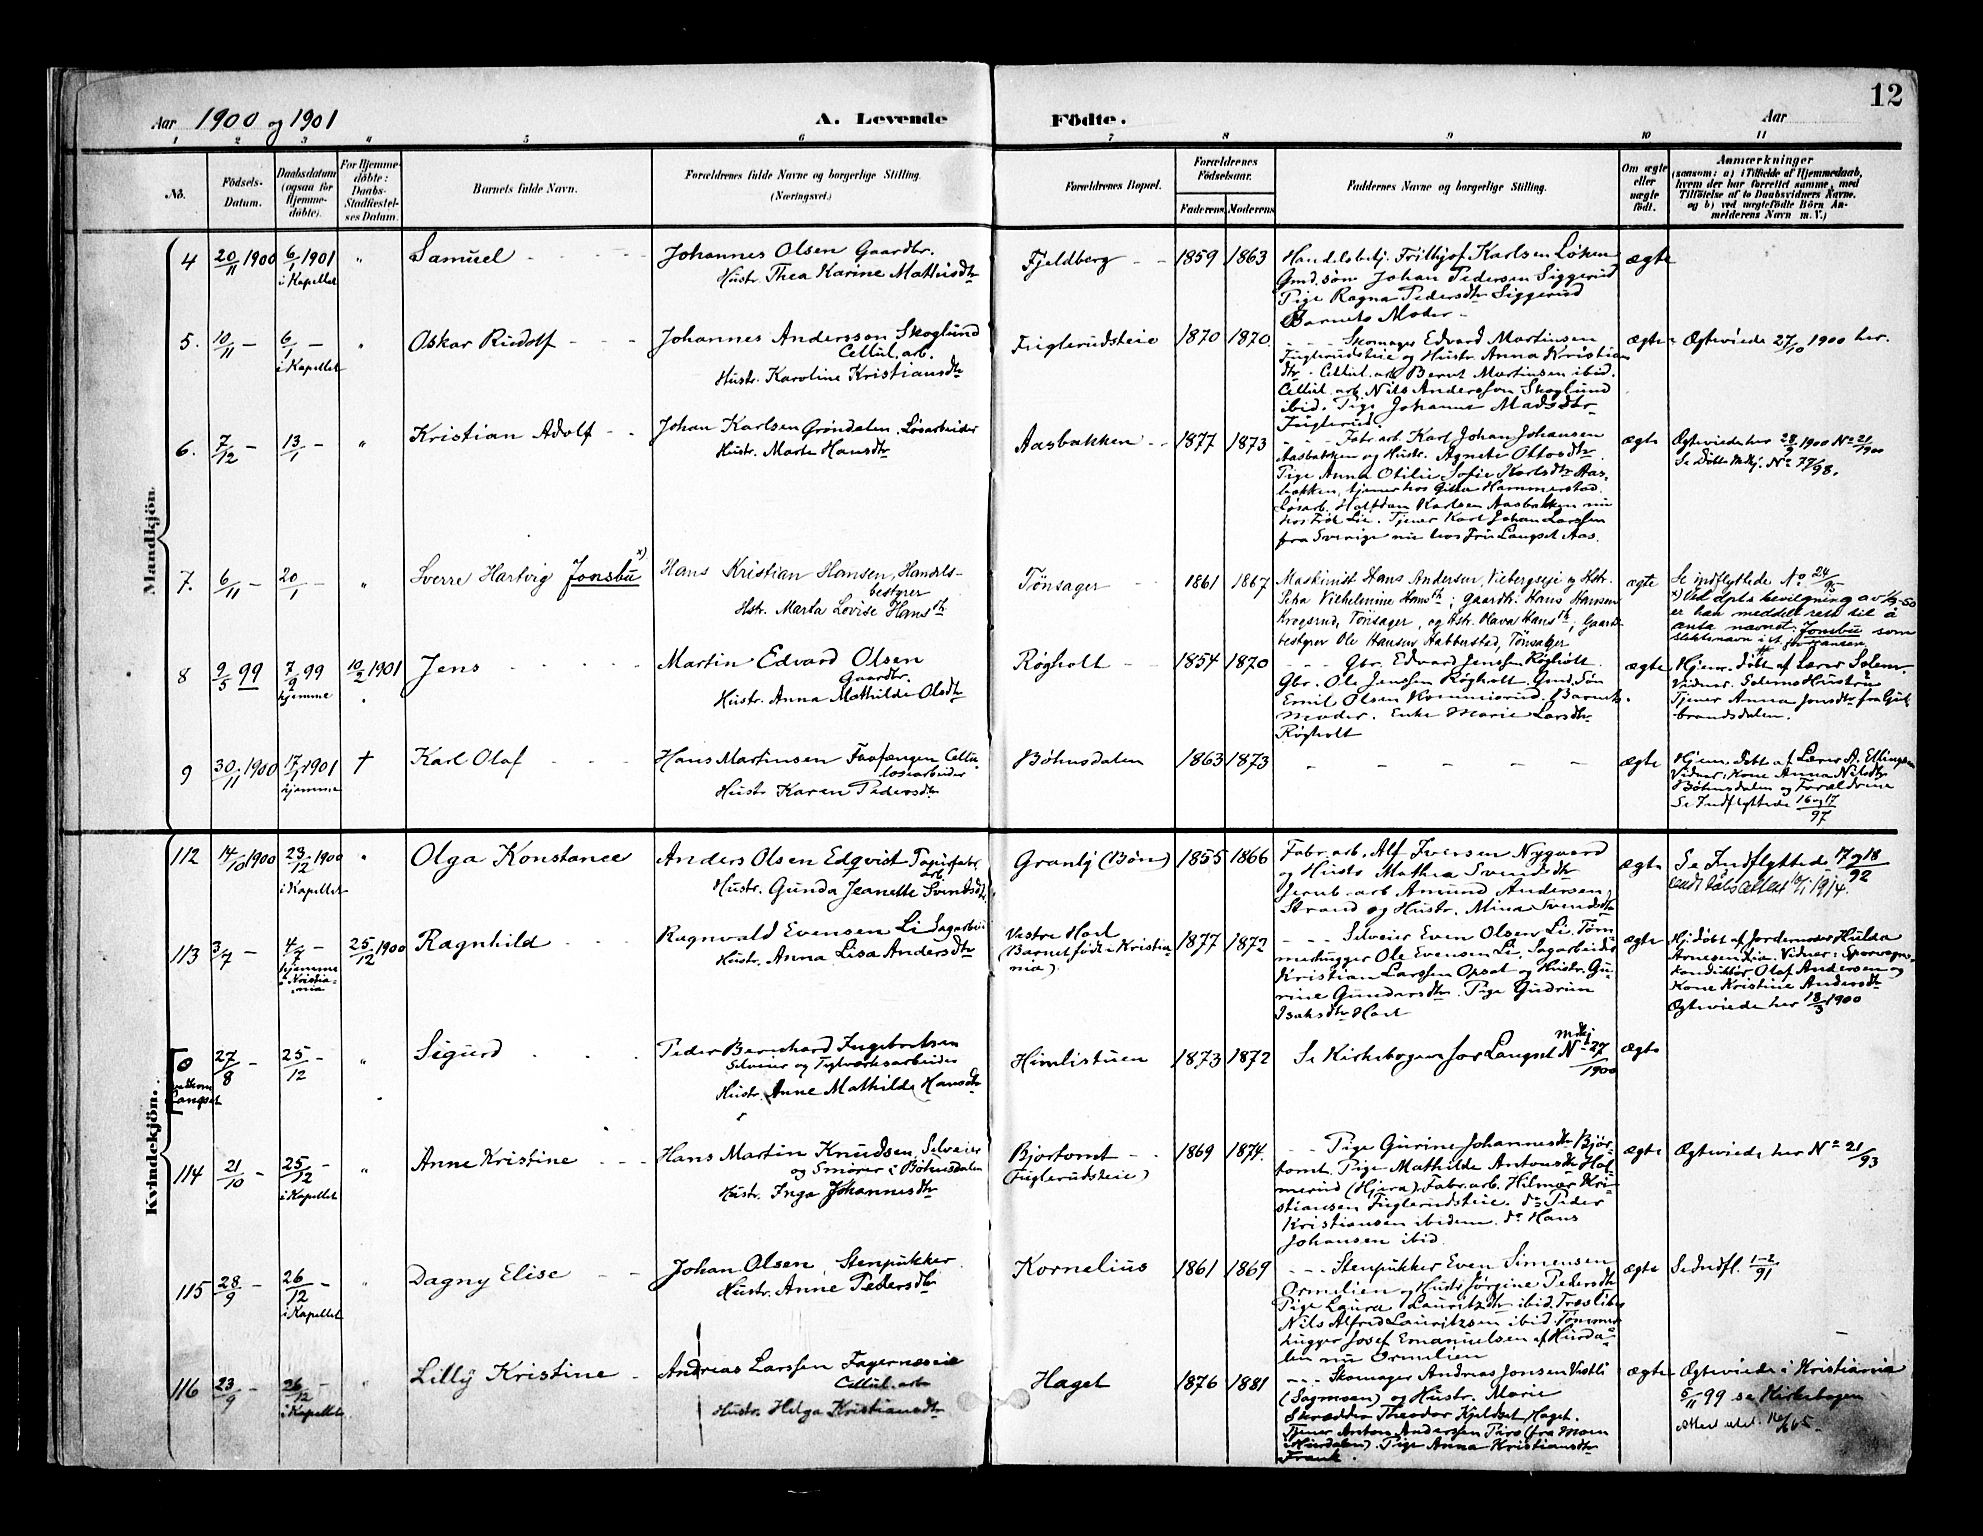 12
Aar 1900 og 1901 A. Levende Födte. Aar
1 2 3 " 5 6 7 8 9 10 11
No.
Födsels-
Datum.
Daabsdatum
(ogsaa for
Hjemme-
döbte).
For Hjemme-
döbte:
Daabs-
Stadfæstel-
ses Datum.
Barnets fulde Navn.
Forældrenes fulde Navne og borgerlige Stilling.
(Næringsvei.)
Forældrenes Bopæl.
Forældrenes
Födselsaar.
Faderens. Moderens.
Faddernes Navne og borgerlige Stilling.
Om ægte
eller
uægte
født.
Anmærkninger
(saasom: a) i Tilfælde af Hjemmedaab,
hvem der har forrettet samme, med
Tilföielse af to Daabsvidners Navne.
og b) ved uægtefödte Börn An-
melderens Navn m. V.)
Mandkjön.
4 20/11 1900 6/1 1901 i Kapellet " Samuel
Johannes Olsen Gaardbr.
Hustr. Thea Karine Mathisdtr
Fjeldberg 1859 1863
Handelsbetj. Frithjof Karlsen Løken
Gmd. søn Johan Pedersen Siggerud
Pige Ragna Pedersdtr Siggerud
Barnets Moder -
ægte
5. 10/11 - 6/1 - i Kapellet " Oskar Rudolf
Johannes Andersson Skoglund
Cellul. arb.
Hustr. Karoline Kristiansdtr
Fuglerudsteie 1870 1870.
- - - Skomager Edvard Martinsen
Fuglerudsteie og Hustr. Anna Kristians
dtr. Cellul. arb. Bernt Martinsen ibid.
Cellul. arb. Nils Andersson Skoglund
ibid. Pige Johanna Madsdtr
Fuglerud.
ægte Ægteviede 27/10 1900 her.
6. 7/12 - 13/1 - " Kristian Adolf
Johan Karlsen Grøndalen. Løsarbeider
Hustr. Marte Hansdtr
Aasbakken 1877 1873
- - - Fabr. arb. Karl Johan Johansen
Aasbakken og Hustr. Agnete Ottosdtr
Pige Anna Otilie Sofie Karlsdtr Aas-
bakken, tjener hos Gitta Hammerstad.
Løsarb. Halfdan Karlsen Aasbakken nu
hos Frøk. Lie. Tjener Karl Johan Larssen
fra Sverige nu hos Fru Langset Aas.
ægte
Ægteviede her 28/9 1900 No 21/1900
Se Døbte Mdkj. No 77/98.
7. 6/11 - 20/1 - " Sverre Hartvig Jonsbu x)
Hans Kristian Hansen, Handels-
bestyrer
Hstr. Marta Lovise Hansdtr
Tønsager 1861 1867
Maskinist Hans Andersen, Viebergseje og Hstr.
Petra Vilhelmine Hansdtr; Gaardbr. Hans Hansen
Krogsrud, Tønsager, og Hstr. Olava Hansdtr; Gaards
bestyrer Ole Hansen Habberstad, Tønsager
ægte
Se indflyttede No 24/95
x) Ved dpts bevilgning av 1/9-50
er han meddelt rett til å
anta navnet: Jonsbu som
slektsnavn i st. for Hansen
8 9/5 99 7/9 99 hjemme 10/2 1901 Jens
Martin Edvard Olsen
Gaardbr.
Hustr. Anna Mathilde Olsdtr
Røgholt 1854 1870
- - - Gbr. Edvard Jenssen Røgholt.
Gbr. Ole Jenssen Røgholt. Gmd. Søn
Emil Olsen Kommisrud. Barnets
Moder. Enke Marie Larsdtr
Røgholt
ægte
Hjem. døbt af Lærer Solem.
Vidner. Solems Hustru &
Tjener Anna Jonsdtr fra Gul-
brandsdalen.
9 30/11 1900 17/1 1901 hjemme † Karl Olaf
Hans Martinsen Faafængen Cellu-
losearbeider
Hustr Karen Pedersdtr
Bøhnsdalen 1863 1873 - - - - - ægte
Hjem. døbt af Lærer A. Ellingsen
Vidner. Kone Anna Nilsdtr
Bøhnsdalen og Forældrene
Se Indflyttede 16 og 17/97
Kvindekjön.
112 14/10 1900 23/12 1900 i Kapellet " Olga Konstance
Anders Olsen Edqvist Papirfabr.
arb.
Hustr. Gunda Jeanette Svendsdtr
Granly (Bøn) 1855 1866
Fabr. arb. Alf Iversen Nygaard
og Hustr Mathea Svendsdtr
Jernb. arb. Amund Andersen
Strand og Hustr. Mina Svendsdtr
ægte
Se Indflyttede 17 og 18/92
sendt dåbsattest 10/1 1914.
113 3/7 - 4/7 - hjemme i Kristia-
nia 25/12 1900 Ragnhild
Ragnvald Evensen Li Sagarbei
Hustr. Anna Lisa Andersdtr
Vestre Hart
(Barnet født i Kristia-
nia).
1877 1872
- - - Selveier Even Olsen Li. Tøm-
merhugger Ole Evensen Li. Sagarbeider
Kristian Larssen Opsal og Hustr. Gu-
rine Gundersdtr. Pige Gudrun
Isaksdtr Hart
ægte
Hj. døbt af Jordemoder Hulda
Arnesen Lia. Vidner: Sporvogns-
konduktør Olaf Andersen og
Kone Kristine Andersdtr
Ægteviede her 18/3 1900
0 27/8 - 25/12 - " Sigurd
Langset
Peder Bernhard Ingebretsen
Selveier og Teglværksarbeider
Hustr. Anne Mathilde Hansdtr
Himlistuen 1873 1872 Se Kirkebogen for Langset Mdkj No 27/1900 ægte
114 21/10 - 25/12 - i Kapellet " Anne Kristine
Hans Martin Knudsen, Selveier
og Smører i Bøhnsdalen
Hustr. Inga Johannesdtr
Bjortomt
(Fuglerudsteie)
1869 1874.
- - Pige Gurine Johannesdtr Bjør-
tomt. Pige Mathilde Antonsdtr Hol-
merud (Hjera). Fabr. arb. Hilmar Kri-
stiansen Fuglerudsteie. do Peder
Kristiansen ibidem. do Hans
Johansen ibid.
ægte Ægteviede her No 21/93
115 28/9 - 26/12 - i Kapellet " Dagny Elise
Johan Olsen, Stenpukker
Hustr. Anne Pedersdtr
Kornelius 1861 1869
- - - Stenpukker Even Simensen
Ormelien og Hustr Jørgine Pedersdtr
Pige Laura Lauritzdtr ibid. Træsliber
Nils Alfred Lauritzsen ibid. Tømmer-
hugger Josef Emanuelsen af Hurda-
len nu Ormelien
ægte Se Indfl. 1-2/91
116 23/9 - 26/12 - i Kapellet " Lilly Kristine
Andreas Larssen Fagernæseie
Cellul. arb.
Hustr. Helga Kristiansdtr
Haget 1876 1881
- - - Skomager Andreas Jonsen Vestli
(Sagmoen) og Hustr. Marie
Skrædder Theodor Kjeldset Haget.
Tjener Anton Andersen Piro (fra Moen
i Hurdalen). Pige Anna Kristiansdtr
Frank.
ægte
Ægteviede i Kristiania
5/11 99 se Kirkebogen
Attest utst.